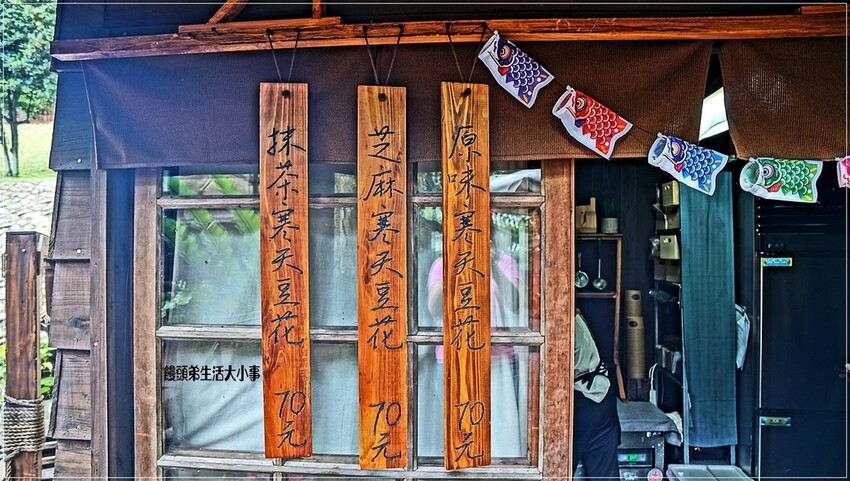 原味寒天豆花 70元
芝麻寒天豆花 70元
抹茶寒天豆花 70元
饅頭弟生活大小事